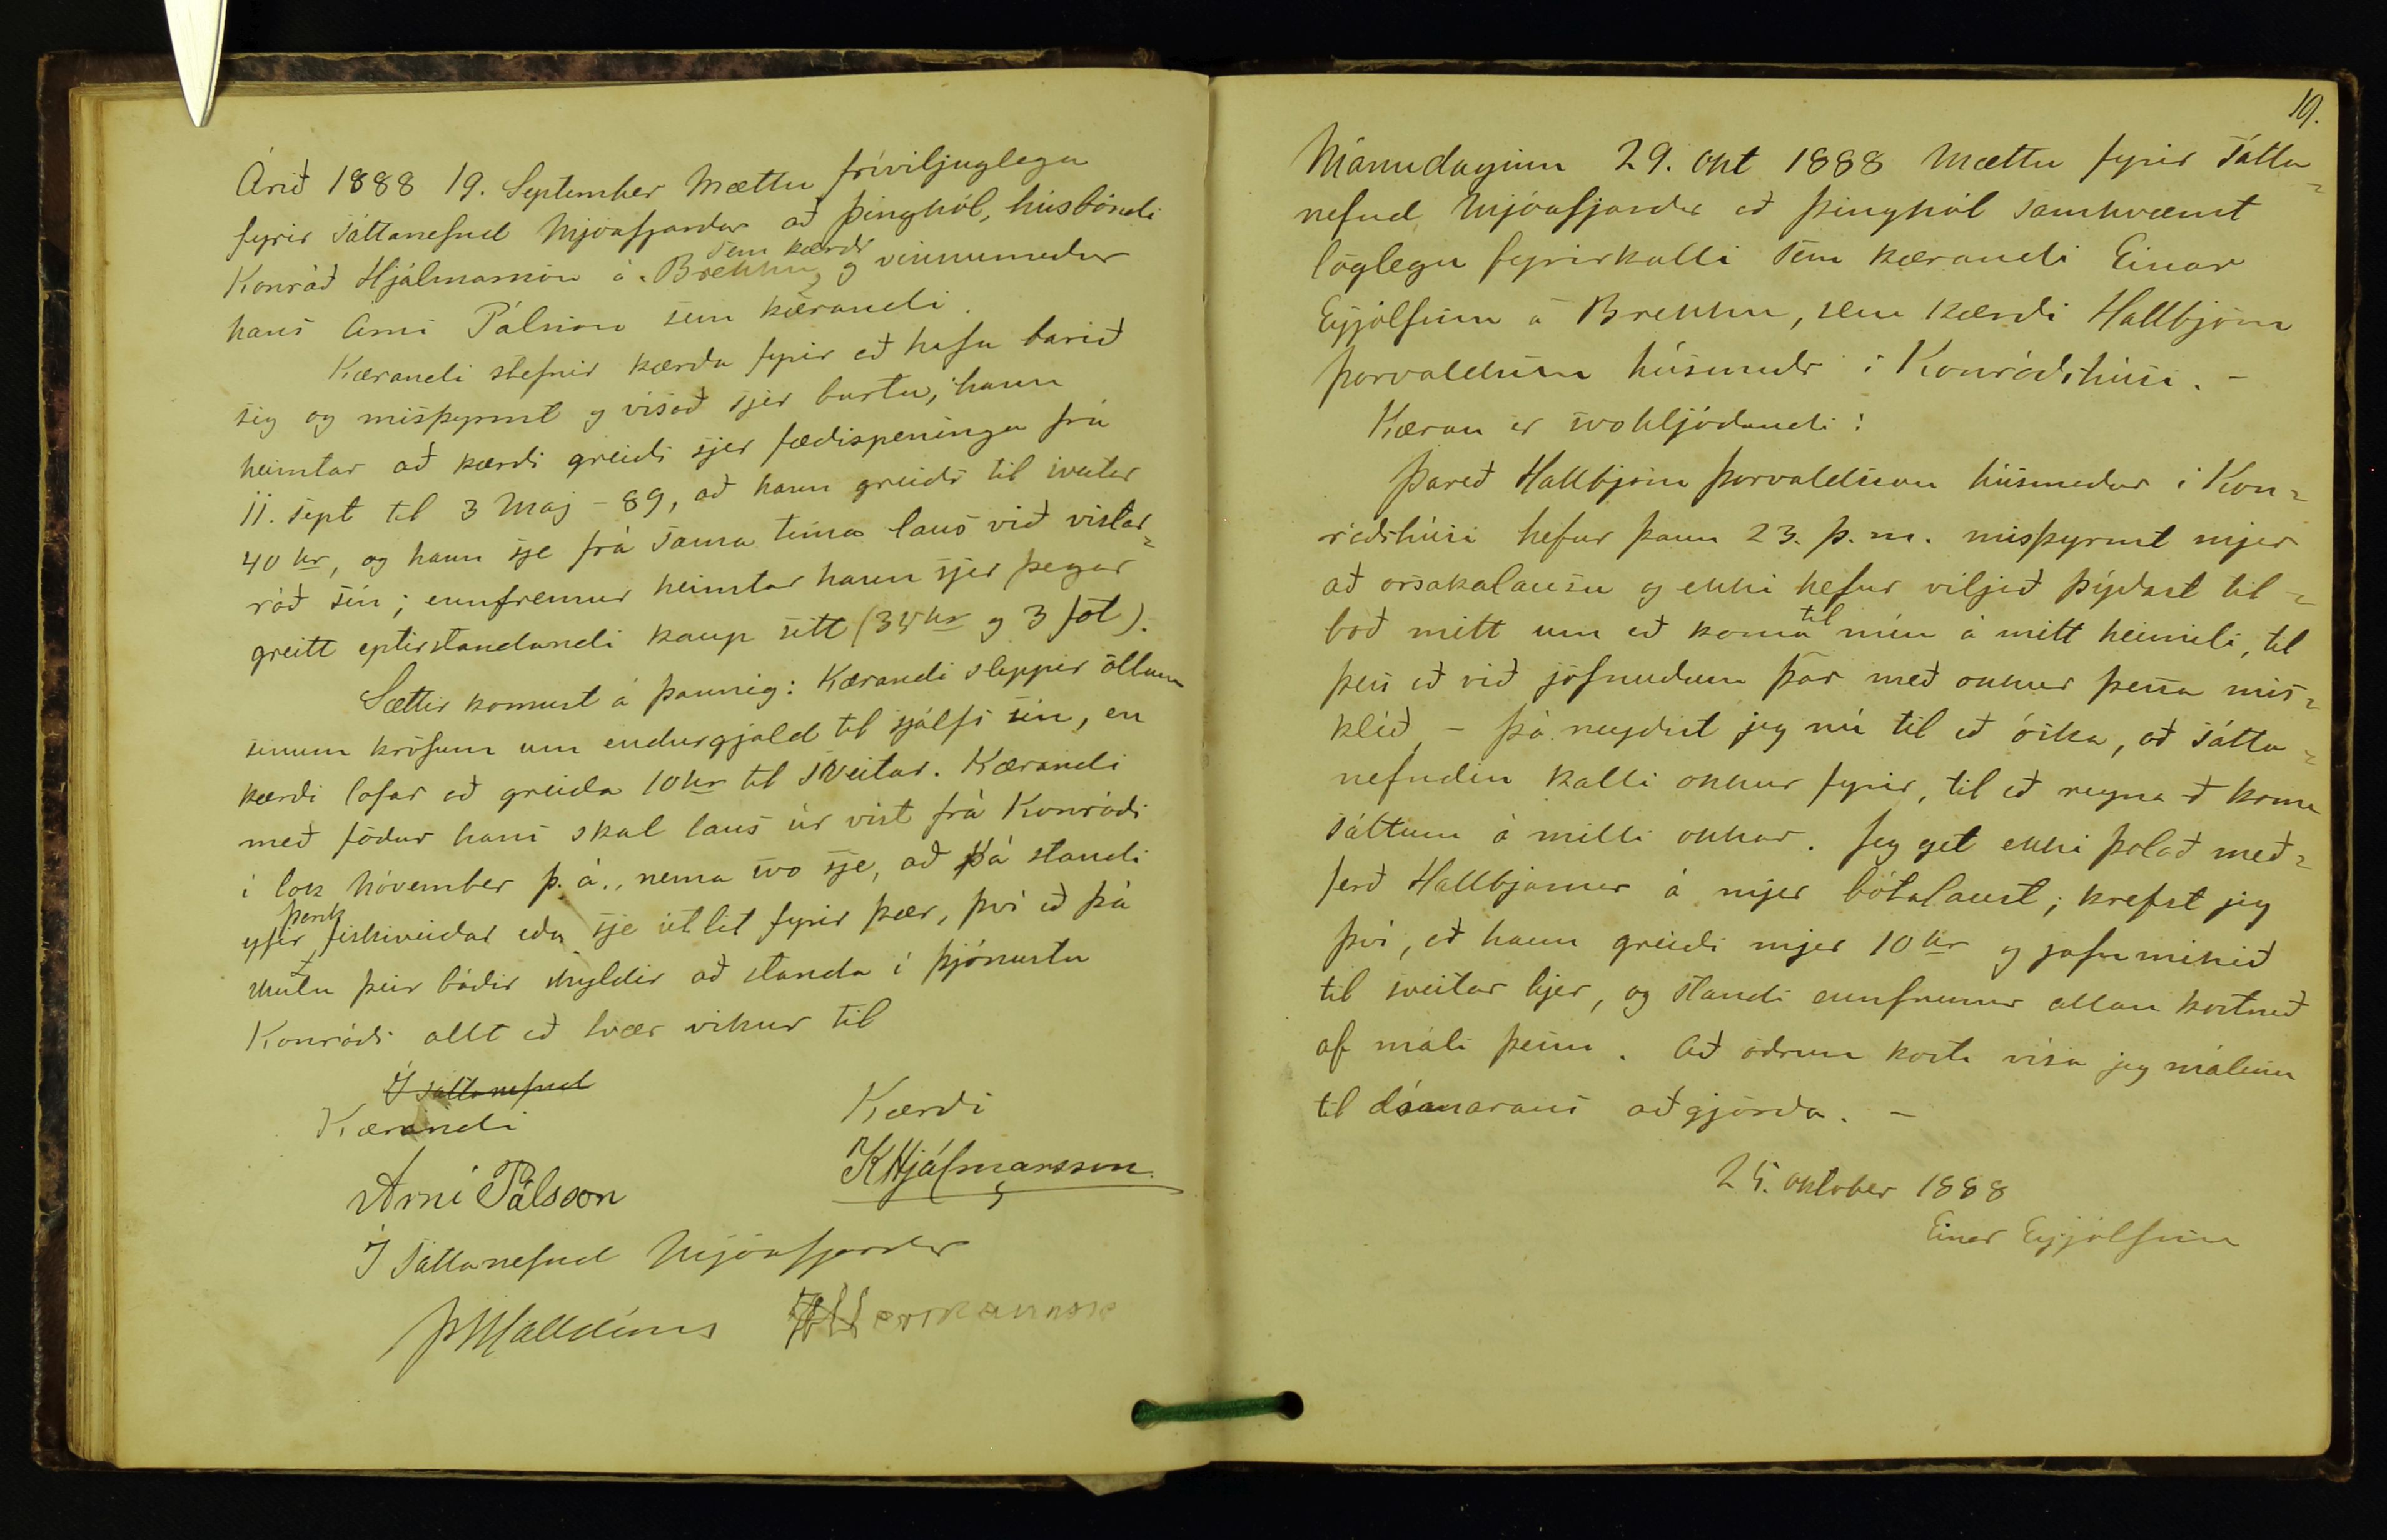 Árið 1888 19. September Mættu fríviljuglega
fyrir sáttanefnd Mjóafjarðar að Þinghól, húsbóndi
Konráð Hjálmarsson á Brekku, sem kærði og vinnumaður
hans Árni Pálsson sem kærandi.
Kærandi stefnir kærða fyrir að hafa barið
sig og misþyrmt og vísað sjer burtu; hann
heimtar að kærði greiði sjer fædispeninga frá
11. sept til 3 Maj - 89, að hann greiði til sveitar
40 kr, og hann sje frá sama tíma laus við vistar-
ráð sín; ennfremur heimtar hann sjer þegar
greitt eptirstandandi kaup sitt (35 kr og 3 föt).
Sættir komust á þannig: Kærandi sleppir öllum
sínum kröfum um endurgjald til sjálfs sín, en
kærði lofar að greiða 10 kr til sveitar. Kærandi
með föður hans skal laus úr vist frá Konráði
í lok Nóvember þ. á., nema svo sje, að þá standi
yfir þorskfiskiveiðar eða sje útlit fyrir þær, því að þá
skulu þeir báðir skyldir að standa í þjónustu
Konráðs allt að tvær vikur til
Í sáttanefnd
Kærandi Kærði
Árni Pálsson KHjálmarsson
Í Sáttanefnd Mjóafjarðar
Þ Halldórss Hermannsso
19.
Mánudaginn 29. okt 1888 Mættu fyrir sátta-
nefnd Mjóafjarðar að Þinghól samkvæmt
löglegu fyrirkalli sem kærandi Einar
Eyjólfsson á Brekku, sem kærði Hallbjörn
Þorvaldsson húsmaðr í Konráðshúsi. -
Kæran er svohljóðandi:
Þareð Hallbjörn Þorvaldsson húsmaður í Kon-
ráðshúsi hefur þann 23. þ. m. misþyrmt mjer
að orsakalausu og ekki hefur viljað þýðast til-
boð mitt um að koma til mín á mitt heimili, til
þess að við jöfnuðum þar með okkur þessa mis-
klíð, - þá neyðist jeg nú til að óska, að sátta-
nefndin kalli okkur fyrir, til að reyna að koma
sáttum á milli okkar. Jeg get ekki þolað með-
ferð Hallbjarnar á mjer bótalaust; krefst jeg
því, að hann greiði mjer 10 kr og jafnmikið
til sveitar hjer, og standi ennfremur allan kostnað
af máli þessu. Að öðrum kosti vísa jeg málinu
til dómarans aðgjörða. -
25. oktober 1888
Einar Eyjólfsson